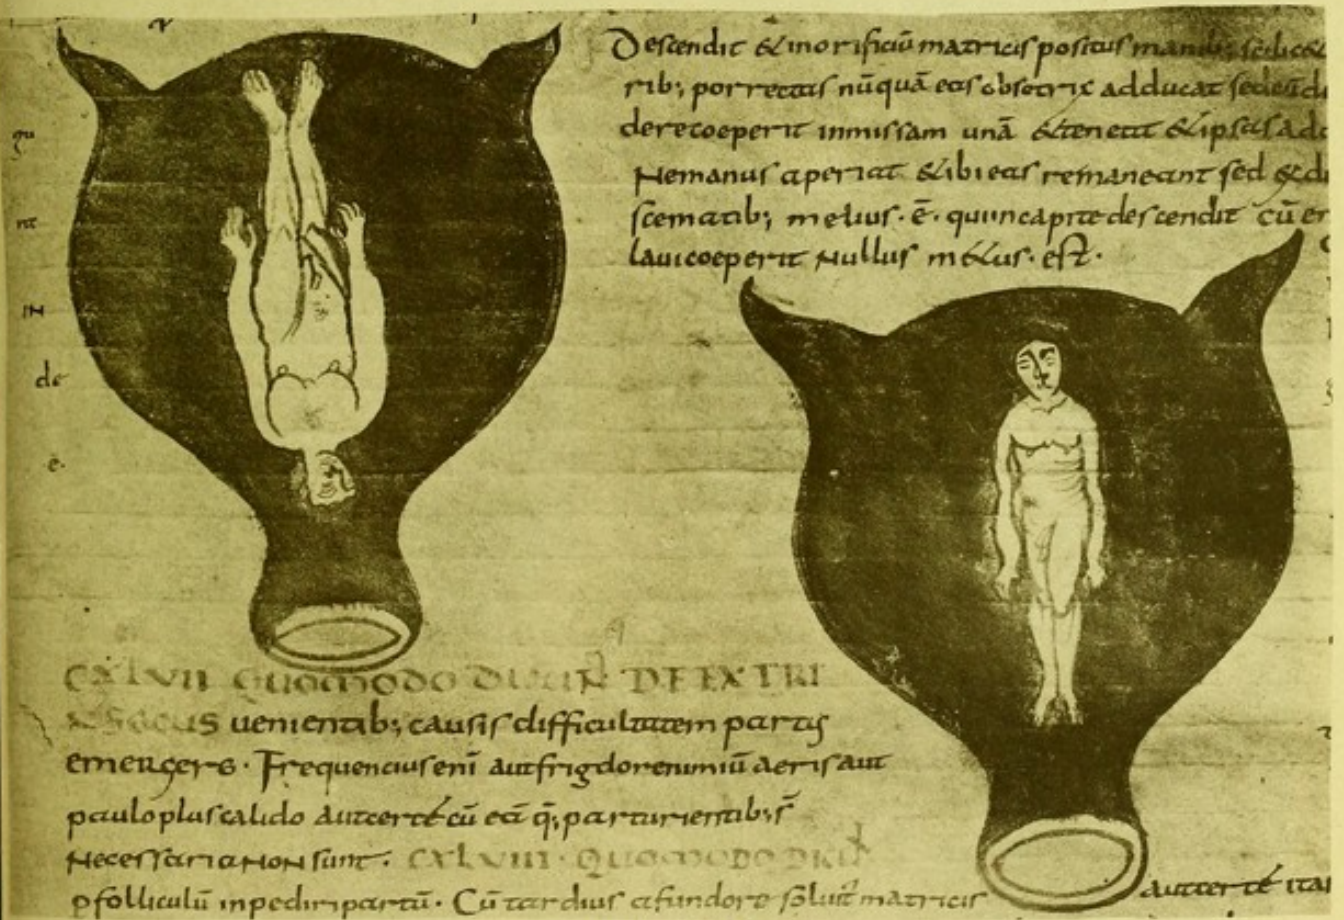 Descendit & in orificiū matricis positus manib;
rib; porrectis nūquā eas obsetrix adducat sed
derecoeperit inmissam unā &teneat &ipsas
Nemanus aperiat &ibi eas remaneant sed
scematib; melius · ē · quum capite descendit cū
laui coeperit Nullus melius · est ·
qu
nt
IN
de
e ·
CXLVII QUOMODO DE EXTRI
SECUS uenientib; causis difficultatem partus
emergere · Frequencius enī aut frigdore nimiū aeris aut
paulo plus calido aut certé cū ea q; parturientib; s̄
Necessaria NON sunt · CXLVIII · QUOMODO
p folliculū inpediri partū · Cū tardius a fundo re soluit matricis
aut certé